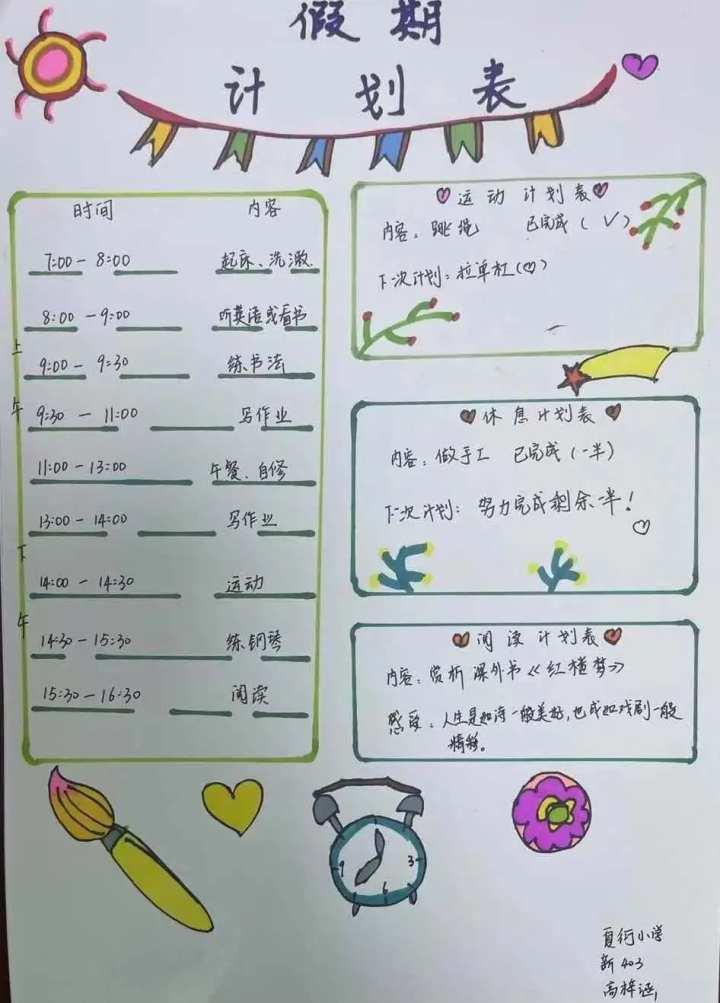 假期
计划表
时间 内容
7:00 - 8:00 起床、洗漱
8:00 - 9:00 听英语或看书
上午
9:00 - 9:30 练书法
9:30 - 11:00 写作业
11:00 - 13:00 午餐、自修
13:00 - 14:00 写作业
下午
14:00 - 14:30 运动
14:30 - 15:30 练钢琴
15:30 - 16:30 阅读
运动计划表
内容：跳绳 已完成（√）
下次计划：拉单杠（♡）
休息计划表
内容：做手工 已完成（一半）
下次计划：努力完成剩余一半！
阅读计划表
内容：赏析课外书《红楼梦》
感受：人生是如诗一般美好，也或如戏剧一般
精彩。
9 3
6
小学
新403
高梓涵